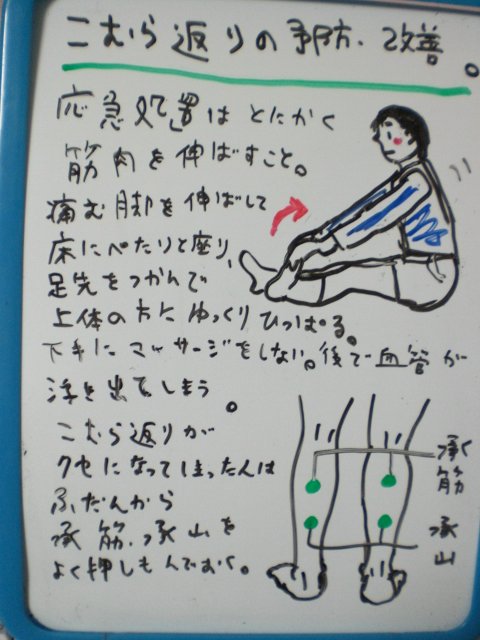 こむら返りの予防、改善。
応急処置は とにかく
筋肉を伸ばすこと。
痛む脚を伸ばして
床にぺたりと座り、
足先をつかんで
上体の方にゆっくりひっぱる。
下手にマッサージをしない。後で血管が
浮き出てしまう。
こむら返りが
クセになってしまった人は
ふだんから
承筋、承山を
よく押しもんでおく。
承筋
承山